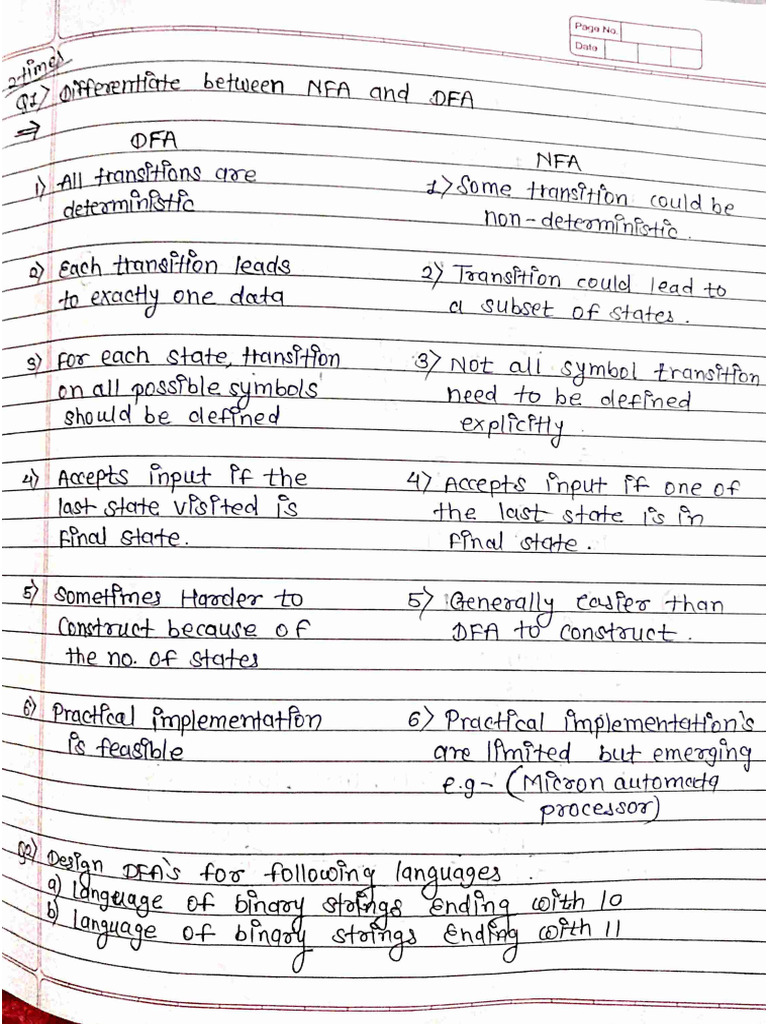 Page No.
Date
2-times
Q1) Differentiate between NFA and DFA
⇒
DFA
1) All transitions are
deterministic
2) Each transition leads
to exactly one data
3) for each state, transition
on all possible symbols
should be defined
4) Accepts input if the
last state visited is
Final state.
5) Sometimes Harder to
Construct because of
the no. of states
6) Practical implementation
is feasible
NFA
1) Some transition could be
non-deterministic.
2) Transition could lead to
a subset of states.
3) Not all symbol transition
need to be defined
explicitly.
4) Accepts input if one of
the last state is in
final state.
5) Generally easier than
DFA to construct.
6) Practical implementation's
are limited but emerging
e.g- (Micron automata
processor)
Q2) Design DFA's for following languages.
a) Language of binary strings Ending with 10
b) Language of binary strings Ending with 11